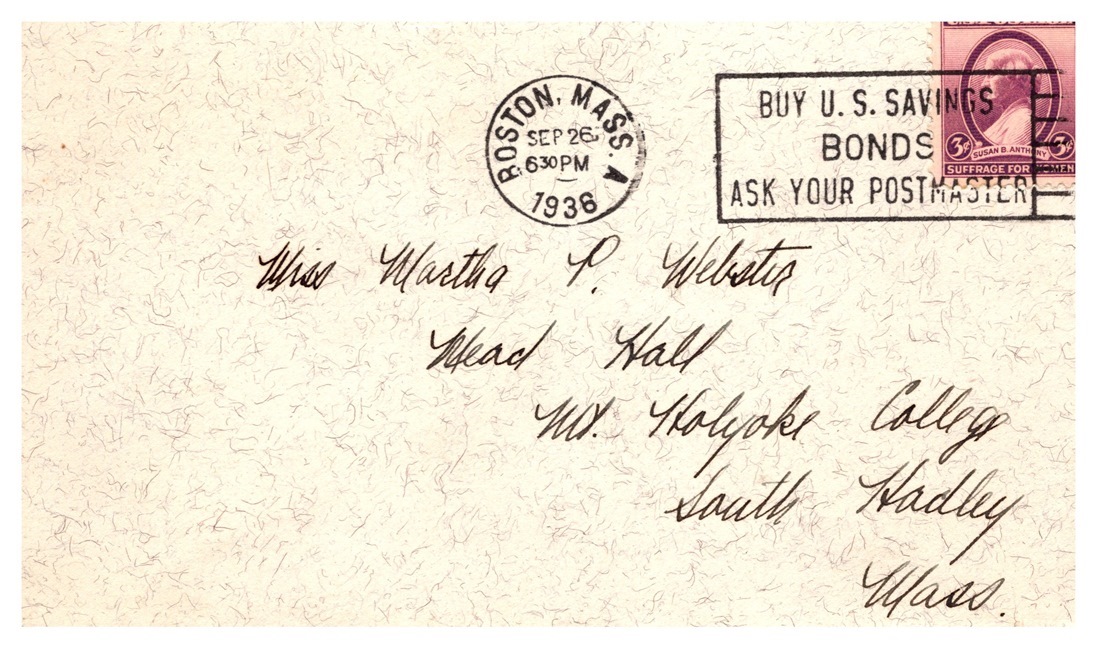 BOSTON, MASS. A
SEP 26
630 PM
1936
BUY U. S. SAVINGS
BONDS
ASK YOUR POSTMASTER
3¢ SUSAN B. ANTHONY 3¢
SUFFRAGE FOR WOMEN
Miss Martha P. Webster
Mead Hall
Mt. Holyoke College
South Hadley
Mass.